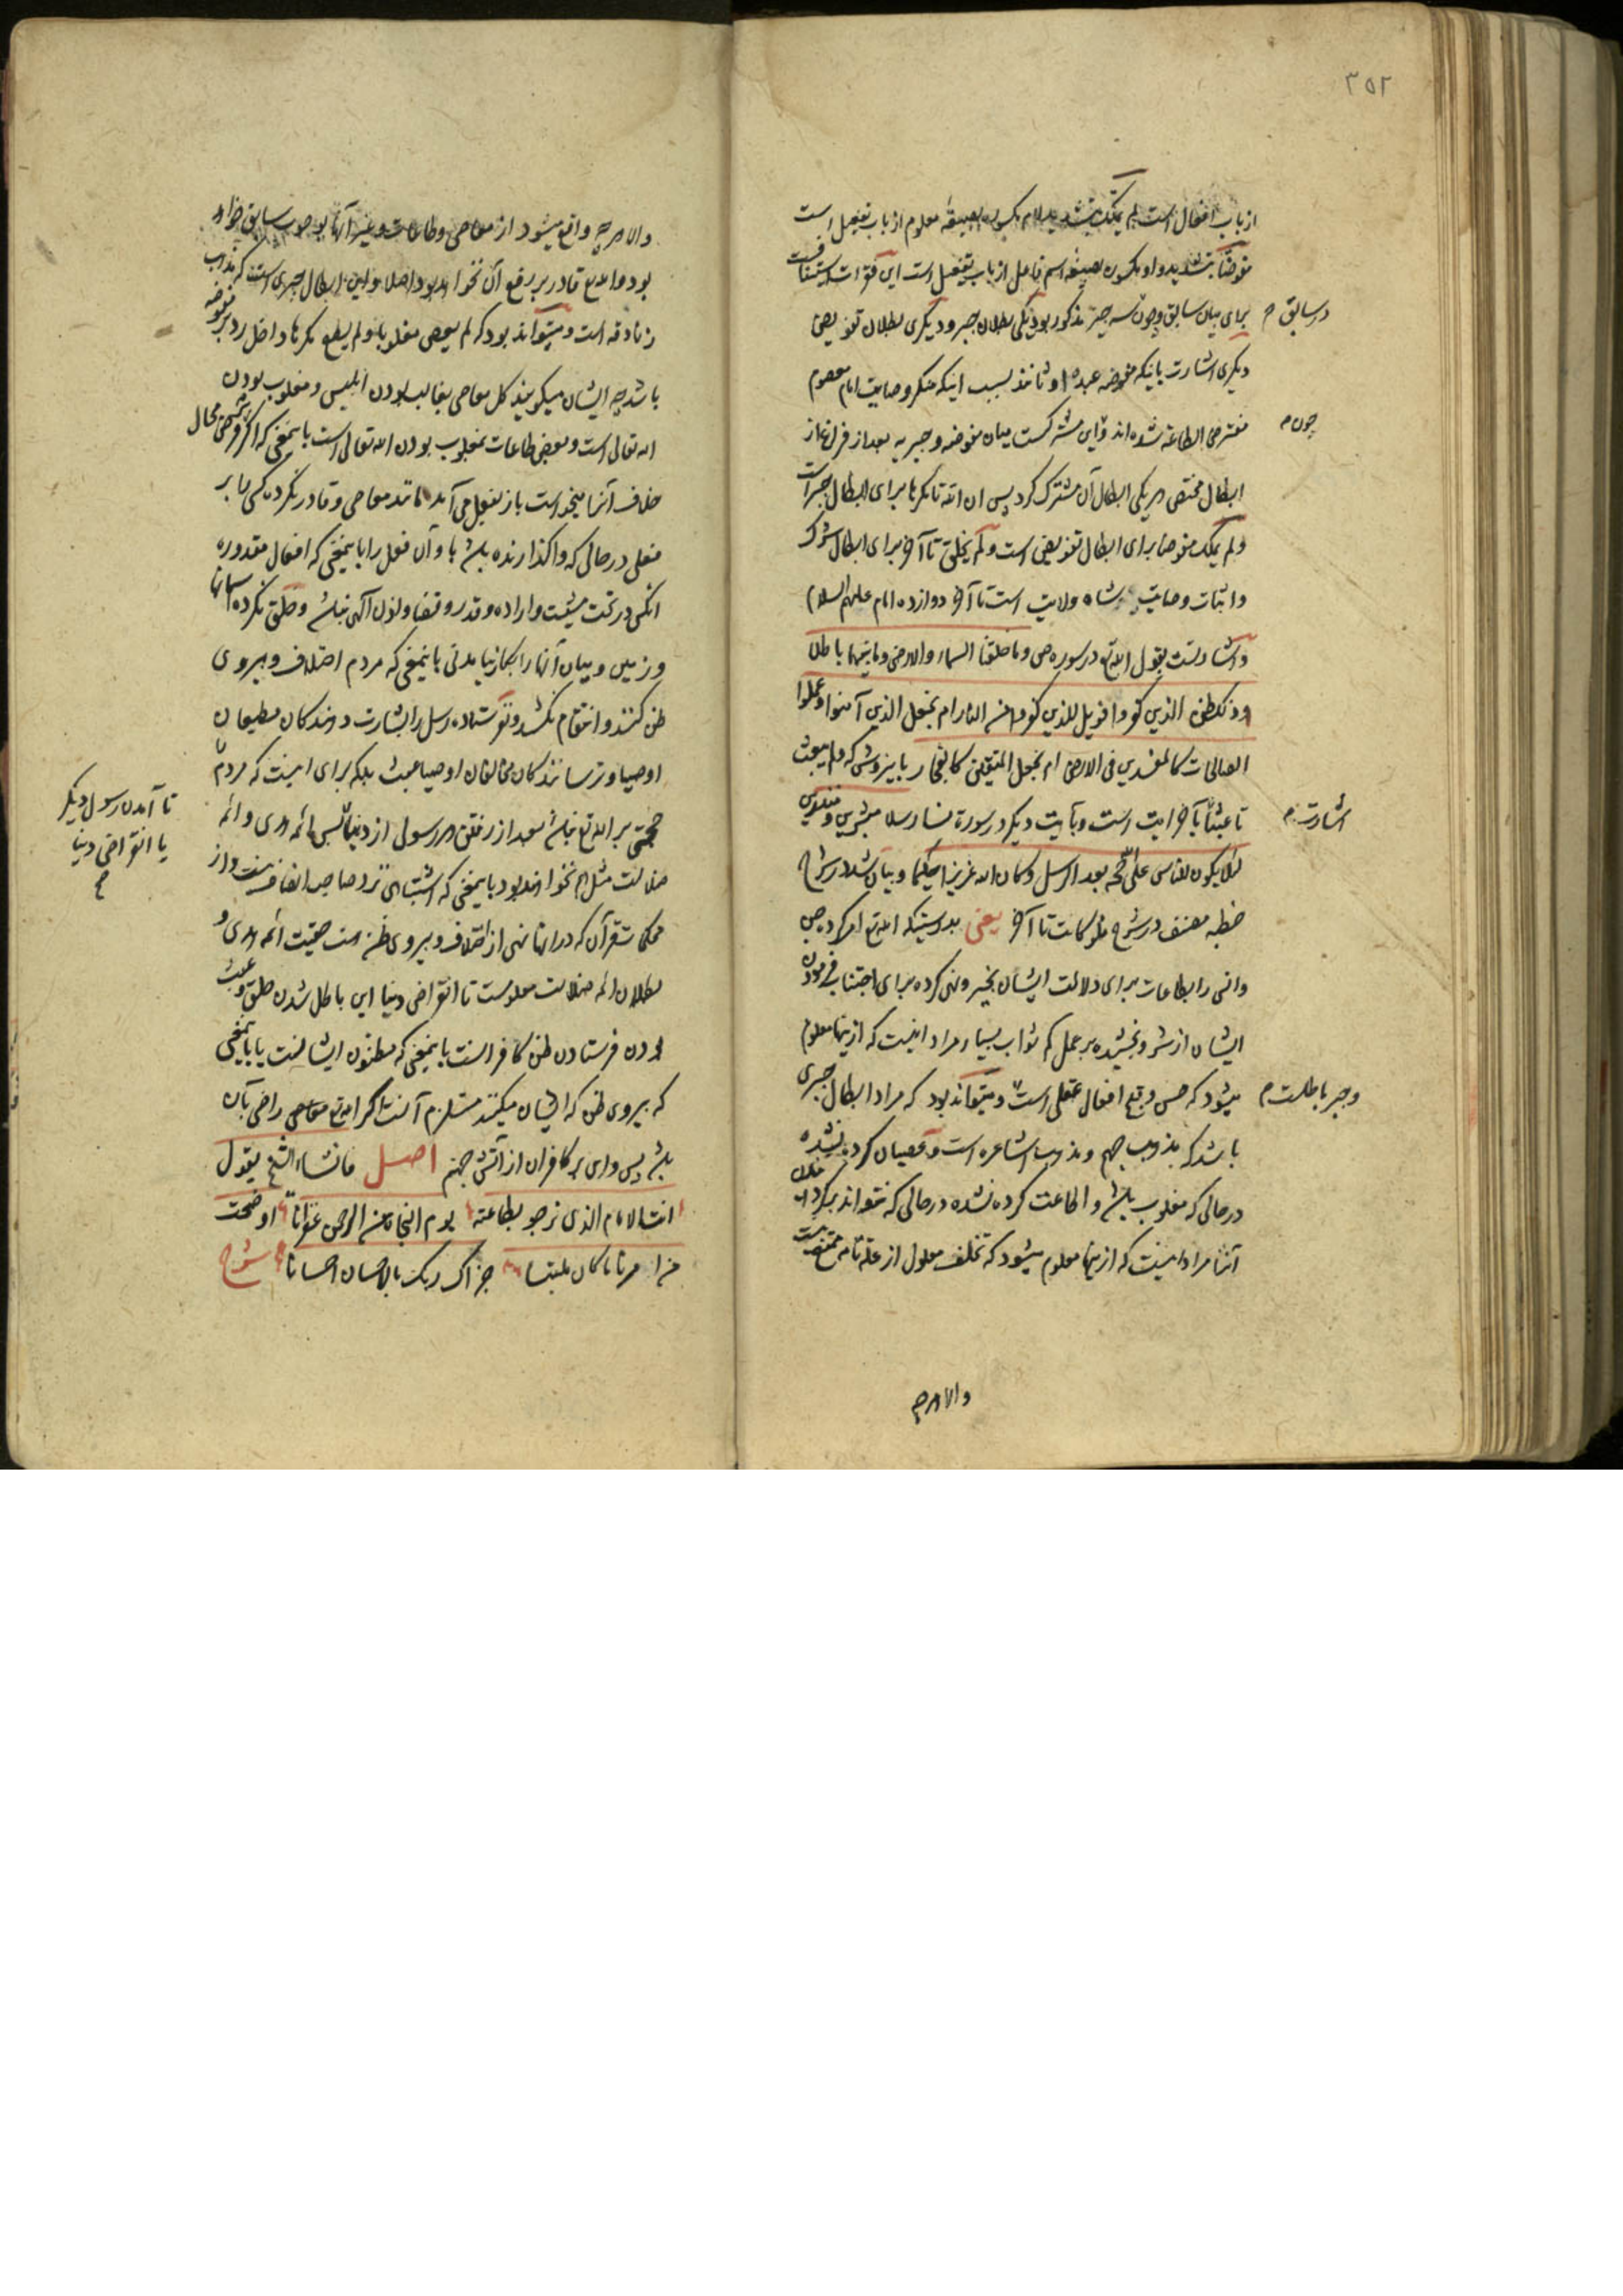 ۳۵۲
از باب افعال است لم یملک بتشدید لام مکسوره بصیغهٔ معلوم از باب تفعیل است
مفوضا بتشدید واو مکسوره بصیغه اسم فاعل از باب تفعیل است این فقرات استینافست
برای بیان سابق و چون سه چیز مذکور بود یکی بطلان جبر و دیگری بطلان تفویض
در سابق م
دیگری اشارت باینکه مفوضه عبدهٔ اوثانند بسبب اینکه منکر وصایت امام معصوم
مفترض الطاعة شده‌اند و این مشترکست میان مفوضه و جبریه بعد از فراغ از
چون م
ابطال مختص هر یکی ابطال آن مشترک کرد پس ان الله تا مکرها برای ابطال جبر است
ولم یملک مفوضا برای ابطال تفویض است ولم یخلق تا آخر برای ابطال مشترک
و اثبات وصایت شاه ولایت است تا آخر دوازده امام علیهم السلام
و اشارتست بقول الله تع در سوره ص وما خلقنا السماء والارض وما بینهما باطلا
ذلک ظن الذین کفروا فویل للذین کفروا من النار ام نجعل الذین آمنوا وعملوا
الصالحات کالمفسدین فی الارض ام نجعل المتقین کالفجار باین روش که ولم یبعث
تا عبثا بآخر ایت است و بآیت دیگر در سورة نسا رسلا مبشرین ومنذرین
اشارت م
لئلا یکون للناس علی الله حجة بعد الرسل وکان الله عزیزا حکیما و بیان شد در شرح
خطبه مصنف در شرح فلو کانت تا آخر یعنی بدرستیکه الله تع امر کرد جن
وانس را بطاعات برای دلالت ایشان بخیر و نهی کرده برای اجتناب فرمودن
ایشان از شر و بخشیده بر عمل کم ثواب بسیار مراد اینست که ازینها معلوم
میشود که حسن و قبح افعال عقلی است و میتواند بود که مراد ابطال جبری
و جبر باطلست م
باشد که مذهب جهم و مذهب اشاعره است و عصیان کرده نشده
در حالی که مغلوب باشد و اطاعت کرده نشده در حالی که نتواند کرد خلاف
آنرا مراد اینست که ازینها معلوم میشود که تخلف معلول از علة تامه ممتنع نیست
والا هر چه
والا هر چه واقع میشود از معاصی و طاعات و غیر آنها بوجوب سابق خواهد
بود و الله تع قادر بر رفع آن نخواهد بود اصلا و این ابطال جبری است که مذهب
زنادقه است و میتواند بود که لم یعص مغلوبا ولم یطع مکرها داخل رد بر مفوضه
باشد چه ایشان میگویند کل معاصی بغالب بودن ابلیس و مغلوب بودن
الله تعالی است و بعض طاعات بمغلوب بودن الله تعالی است باینمعنی که اگر بفرض محال
خلاف آنرا میخواست باز بفعل می‌آمد مانند معاصی و قادر نکرده کسی را بر
فعلی در حالی که واگذارنده باشد باو آن فعل را باینمعنی که افعال مقدوره
آنکس در تحت مشیت و اراده و قدر و قضا و اذن الهی نباشد و خلق نکرده آسمانها
و زمین و میان آنها را بکار نیامدنی باینمعنی که مردم اختلاف و پیروی
ظن کنند و انتقام نکشد و نفرستاده رسل را بشارت دهندگان مطیعان
اوصیا و ترسانندگان مخالفان اوصیا عبث بلکه برای اینست که مردم را
حجتی بر الله تع نباشد بعد از رفتن هر رسول از دنیا پس ائمه هدی و ائمه
تا آمدن رسول دیگر
یا انقراض دنیا
ضلالت مثل هم نخواهند بود باینمعنی که اشتباهی نزد صاحب انصاف نیست و از
محکمات قرآن که در انها نهی از اختلاف و پیروی ظن است حقیت ائمه هدی و
بطلان ائمه ضلالت معلومست تا انقراض دنیا این باطل شدن خلق و عبث
بودن فرستادن ظن کافرانست باینمعنی که مظنون ایشانست یا باینمعنی
که پیروی ظن که ایشان میکنند مستلزم آنست اگر الله تع معاصی راضی بآن
باشد پس وای بر کافران از آتش جهنم اصل فانشاء الشیخ یقول
انت الامام الذی نرجو بطاعته یوم النجاة من الرحمن غفرانا اوضحت
من امرنا ما کان ملتبسا جزاک ربک بالاحسان احسانا شرح